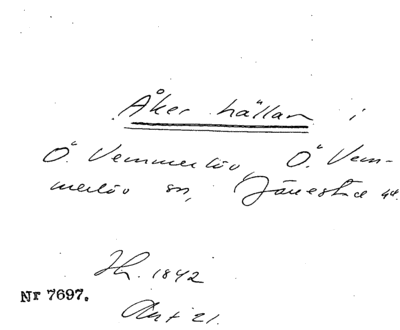 Åker hällan i
Ö. Vemmerlöv, Ö. Vem-
merlöv sn, Järrestad
Jh. 1842
Nr 7697.